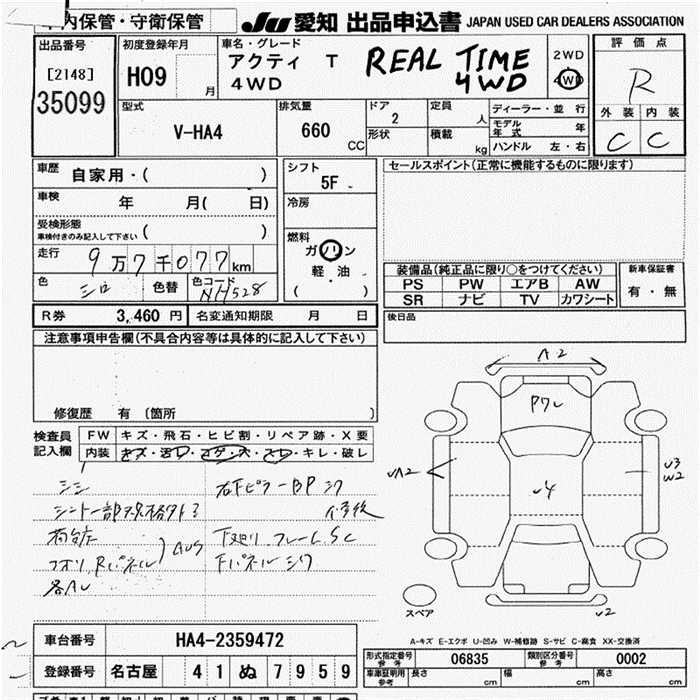 内保管・守衛保管
JU 愛知 出品申込書 JAPAN USED CAR DEALERS ASSOCIATION
出品番号
[2148]
35099
初度登録年月
H09 月
車名・グレード
アクティ T
4WD
REAL TIME
4WD
2WD
4WD
評価点
R
外装 内装
C C
型式
V-HA4
排気量
660 CC
ドア
2
形状
定員 人
積載 kg
ディーラー・並行
モデル年式 年
ハンドル 左・右
車歴
自家用・( )
車検 年 月( 日)
受検形態
車検付きのみ記入して下さい ( )
走行 9万7千077km
色 シロ 色替 色コード NH528
シフト
5F
冷房
燃料
ガソリン
軽・油
( )
セールスポイント(正常に機能するものに限ります)
装備品(純正品に限り○をつけてください)
PS PW エアB AW
SR ナビ TV カワシート
新車保証書
有・無
R券 3,460 円 名変通知期限 月 日
後日品
注意事項申告欄(不具合内容等は具体的に記入して下さい)
修復歴 有 〔箇所 〕
検査員記入欄
FW キズ・飛石・ヒビ割・リペア跡・X要
内装 キズ・汚レ・コゲ・穴・スレ・キレ・破レ
右Fピラー BP シワ
修後
AUS
下廻リ フレーム SC
Fパネル シワ
各AU
A2
U4
UA2
U3
W2
U2
スペア
A-キズ E-エクボ U-凹み W-補修跡 S-サビ C-腐食 XX-交換済
車台番号 HA4-2359472
登録番号 名古屋 41 ぬ 7959
形式指定番号 参考 06835 類別区分番号 参考 0002
車庫証明用参考 長さ cm 幅 cm 高さ cm